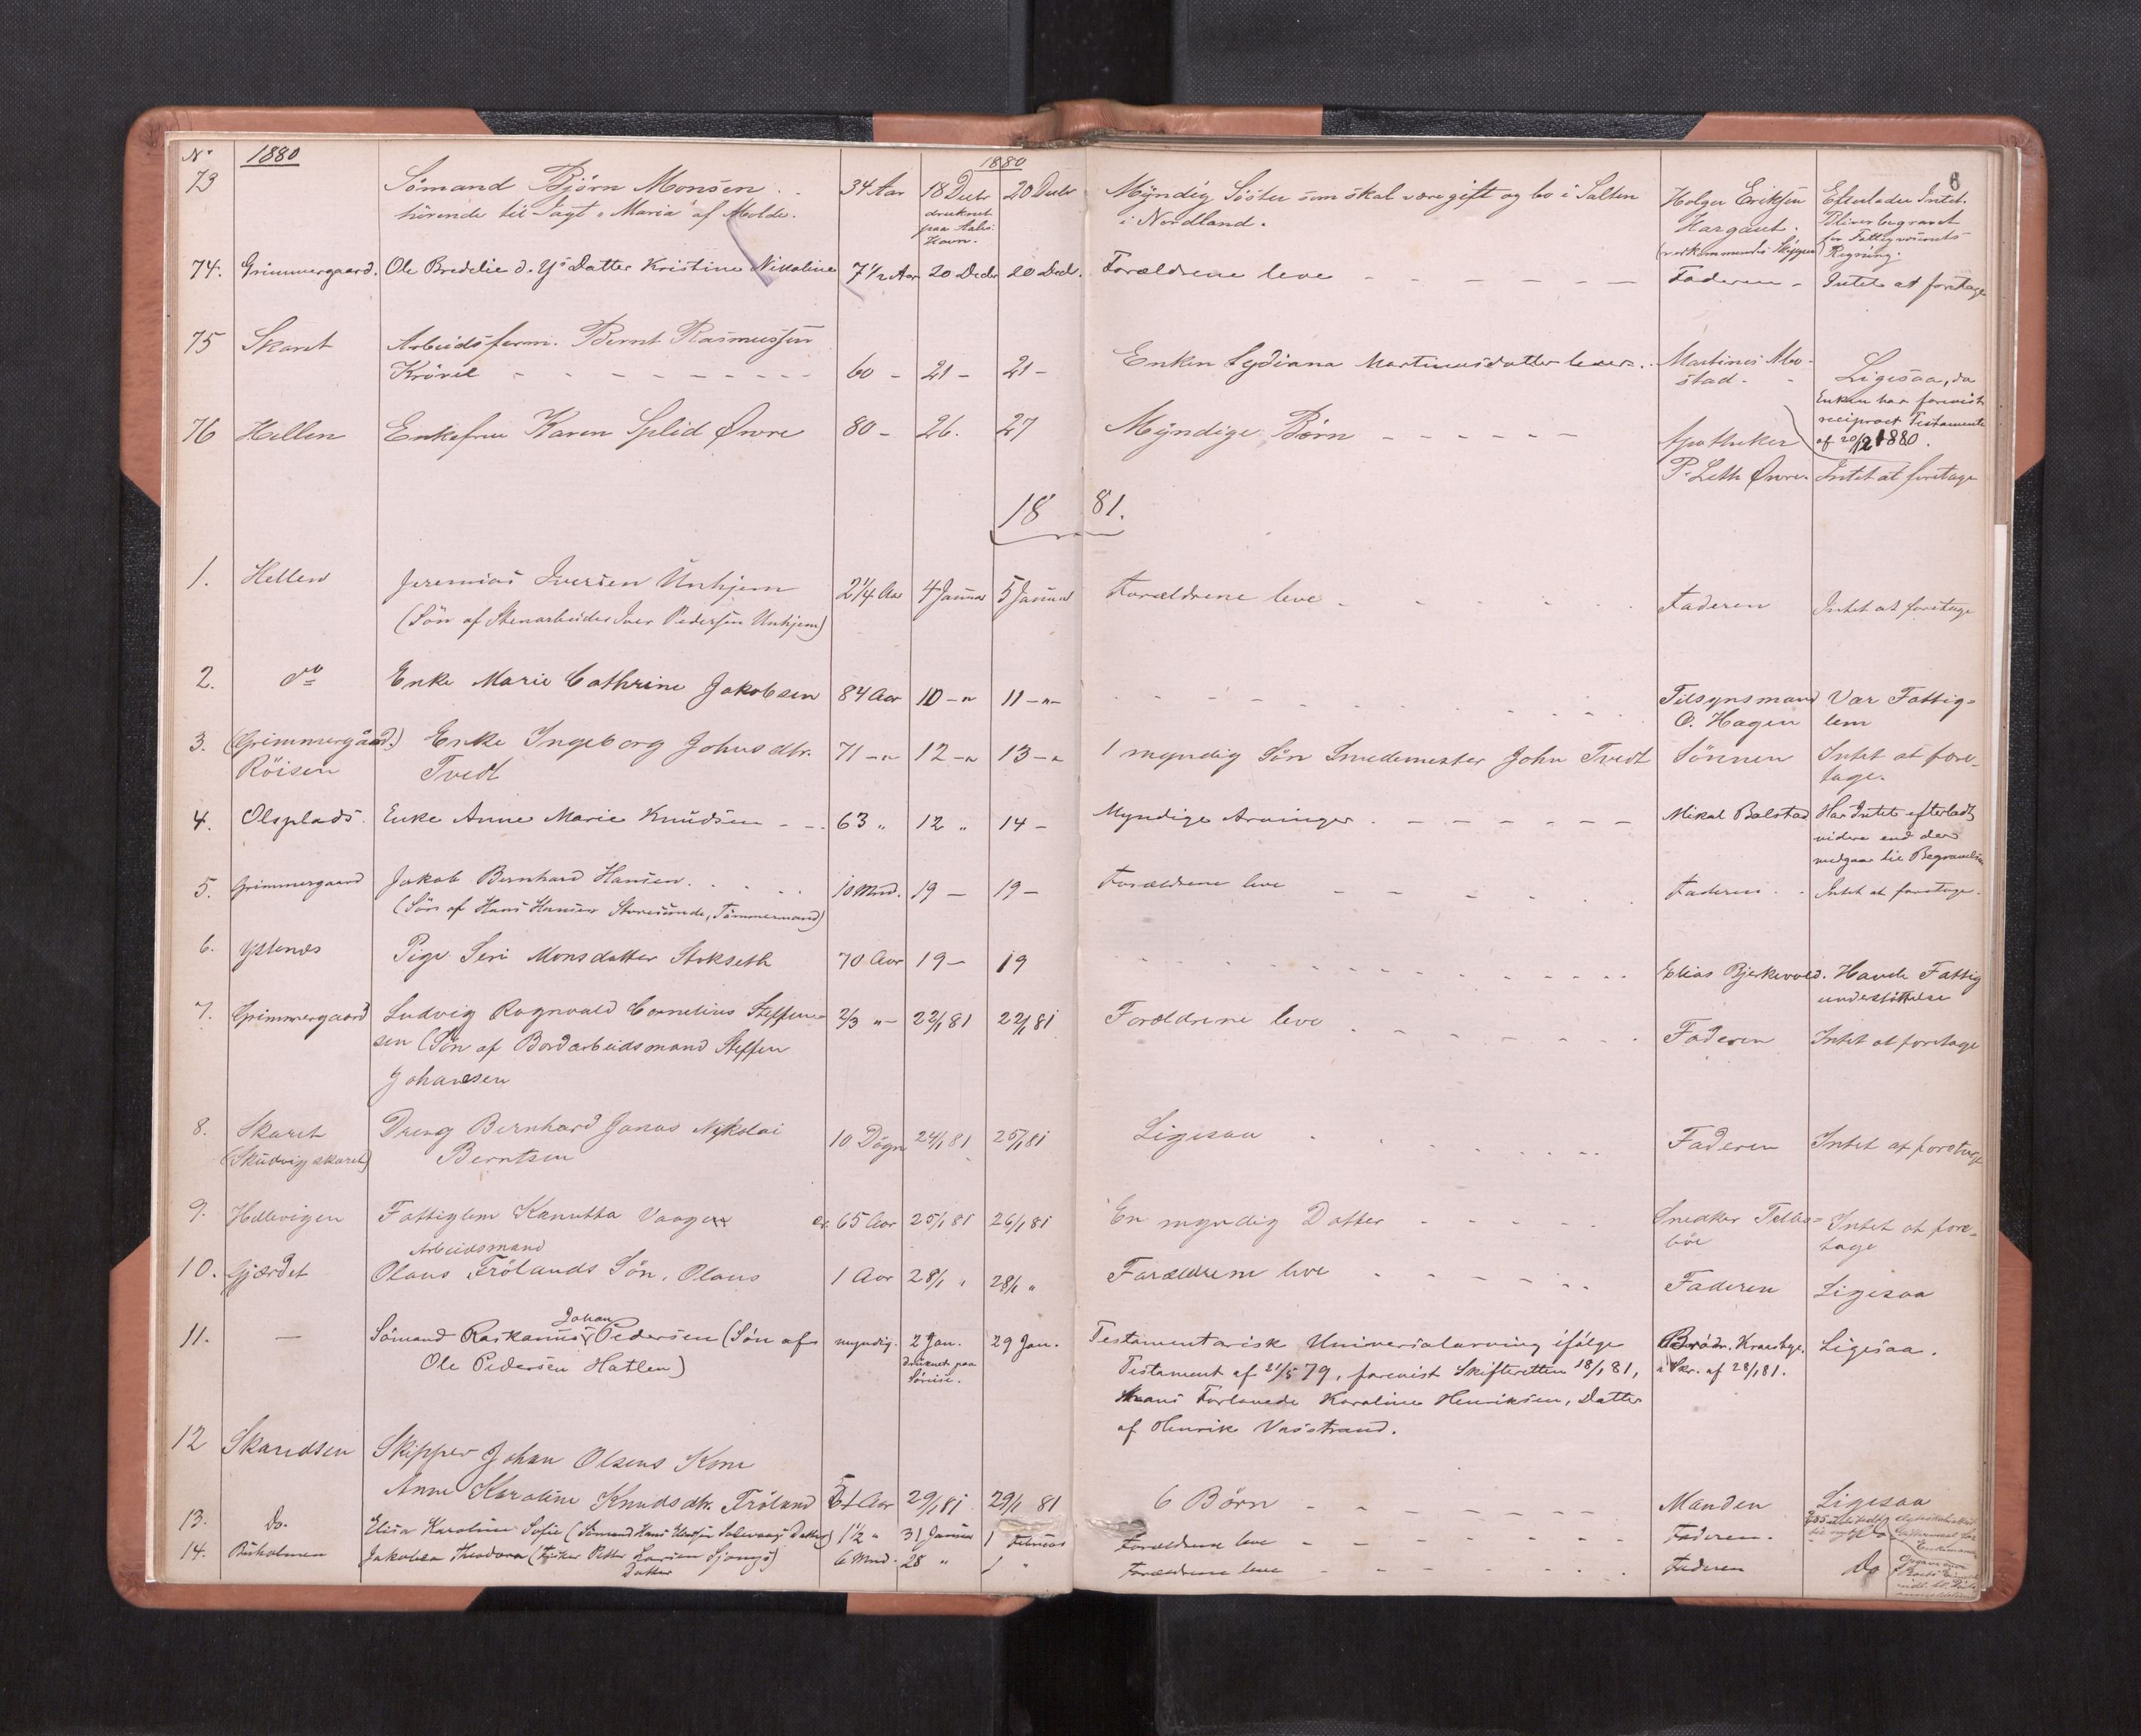 No 1880 1880 6
73 Sömand Björn Monsen 34 Aar 18 Decbr 20 Decbr Myndig Söster som skal være gift og bo i Salten Holger Eriksen Efterlader Intet.
hörende til Jagt "Maria" af Molde. druknet i Nordland. Bliver begravet
paa Aales. Havn. (vedkommendes Skipper) for Fattigvæsenets Regning.
74. Grimmergaard. Ole Bredelie d. Ys Datter Kristine Nikoline 7 1/2 Aar 20 Decbr 20 Decbr. Forældrene leve - - - - - - Faderen - Intet at foretage
75 Skaret Arbeidsform. Bernt Rasmussen
60 - 21 - 21 - Enken Lydiana Martinusdatter lever. Martinus Mostad. Ligesaa, da
Enken har forevist
reciproct Testamente
af 20/12 1880.
76 Hellen Enkefrue Karen Splid Øwre 80 - 26. 27 Myndige Børn - - - - - - Apotheker
P. Leth Øwre. Intet at foretage
1881.
1. Hellen Jeremias Iversen Unhjem 2 1/4 Aar 4 Januar 5 Januar Forældrene leve - Faderen Intet at foretage
(Sön af Stenarbeider Iver Pedersen Unhjem)
2. do Enke Marie Cathrine Jakobsen 84 Aar 10 - " 11 - " - Tilsynsmand Var Fattig=
O. Hagen lem
3. (Grimmergaard.) Enke Ingeborg Johnsdtr. 71 - " 12 - " 13 - " 1 myndig Sön Smedemester John Tvedt Sönnen Intet at fore-
Röisen Tvedt tage.
4. Olsplads. Enke Anne Marie Knudsen - - 63 " 12 " 14 - Myndige Arvinger. - - - - - - Mikal Balstad Har Intet efterladt
videre end der
medgaar til Begravelsen
5. Grimmergaard Jakob Bernhard Hansen. 10 Mnd. 19 - 19 - Forældrene leve - - - Faderen. Intet at foretage.
(Sön af Hans Hansen Storesunde, Tömmermand)
6. Ystenes Pige Seri Monsdatter Stokseth 70 Aar 19 - 19 Elias Bjerkevold. Havde Fattig
understöttelse
7. Grimmergaard Ludvig Rognvald Cornelius Steffen- 2/3 " - 22/1 81 22/1 81 Forældrene leve Faderen Intet at foretage
sen (Sön af Bordarbeidsmand Steffen
Johansen
8. Skaret Dreng Bernhard Jonas Nikolai 10 Dögn 24/1 81 25/1 81 Ligesaa Faderen Intet at foretage
(Skudvigskaret) Berntsen
9. Hellevigen Fattiglem Kanutta Vaagen ca. 65 Aar 25/1 81 26/1 81 En myndig Datter - - - - - Snedker Intet at fore-
tage
Arbeidsmand
10. Gjerdet Olaus Frölands Sön, Olaus 1 Aar 28/1 " 28/1 " Forældrene leve Faderen Ligesaa
Johan
11. - Sömand Pedersen (Sön af myndig. 2 Jan. 29 Jan. Testamentarisk Universalarving ifölge Brödr. i Ligesaa.
Ole Pedersen Hatlen) druknet paa Testament af 21/5 79, forevist Skifteretten 18/1 81, Skr. af 28/1 81.
Söreise. hans Forlovede Karoline Henriksen, Datter
af Henrik Vasstrand.
12 Skansen Skipper Johan Olsens Kone
Anne Karoline Knudsdtr. Fröland 51 Aar 29/1 81 29/1 81 6 Børn - - - - - - Manden Ligesaa
13. Do. Elisa Karoline Sofie (Sömand Hans Datter) 1 1/2 " 31 Januar 1 Februar Forældrene leve - - - - - Faderen.
14. Buholmen Jakobea Theodora (Fisker Petter Larsen Datter) 6 Mnd. 28 " 1 " Forældrene leve - Faderen Do